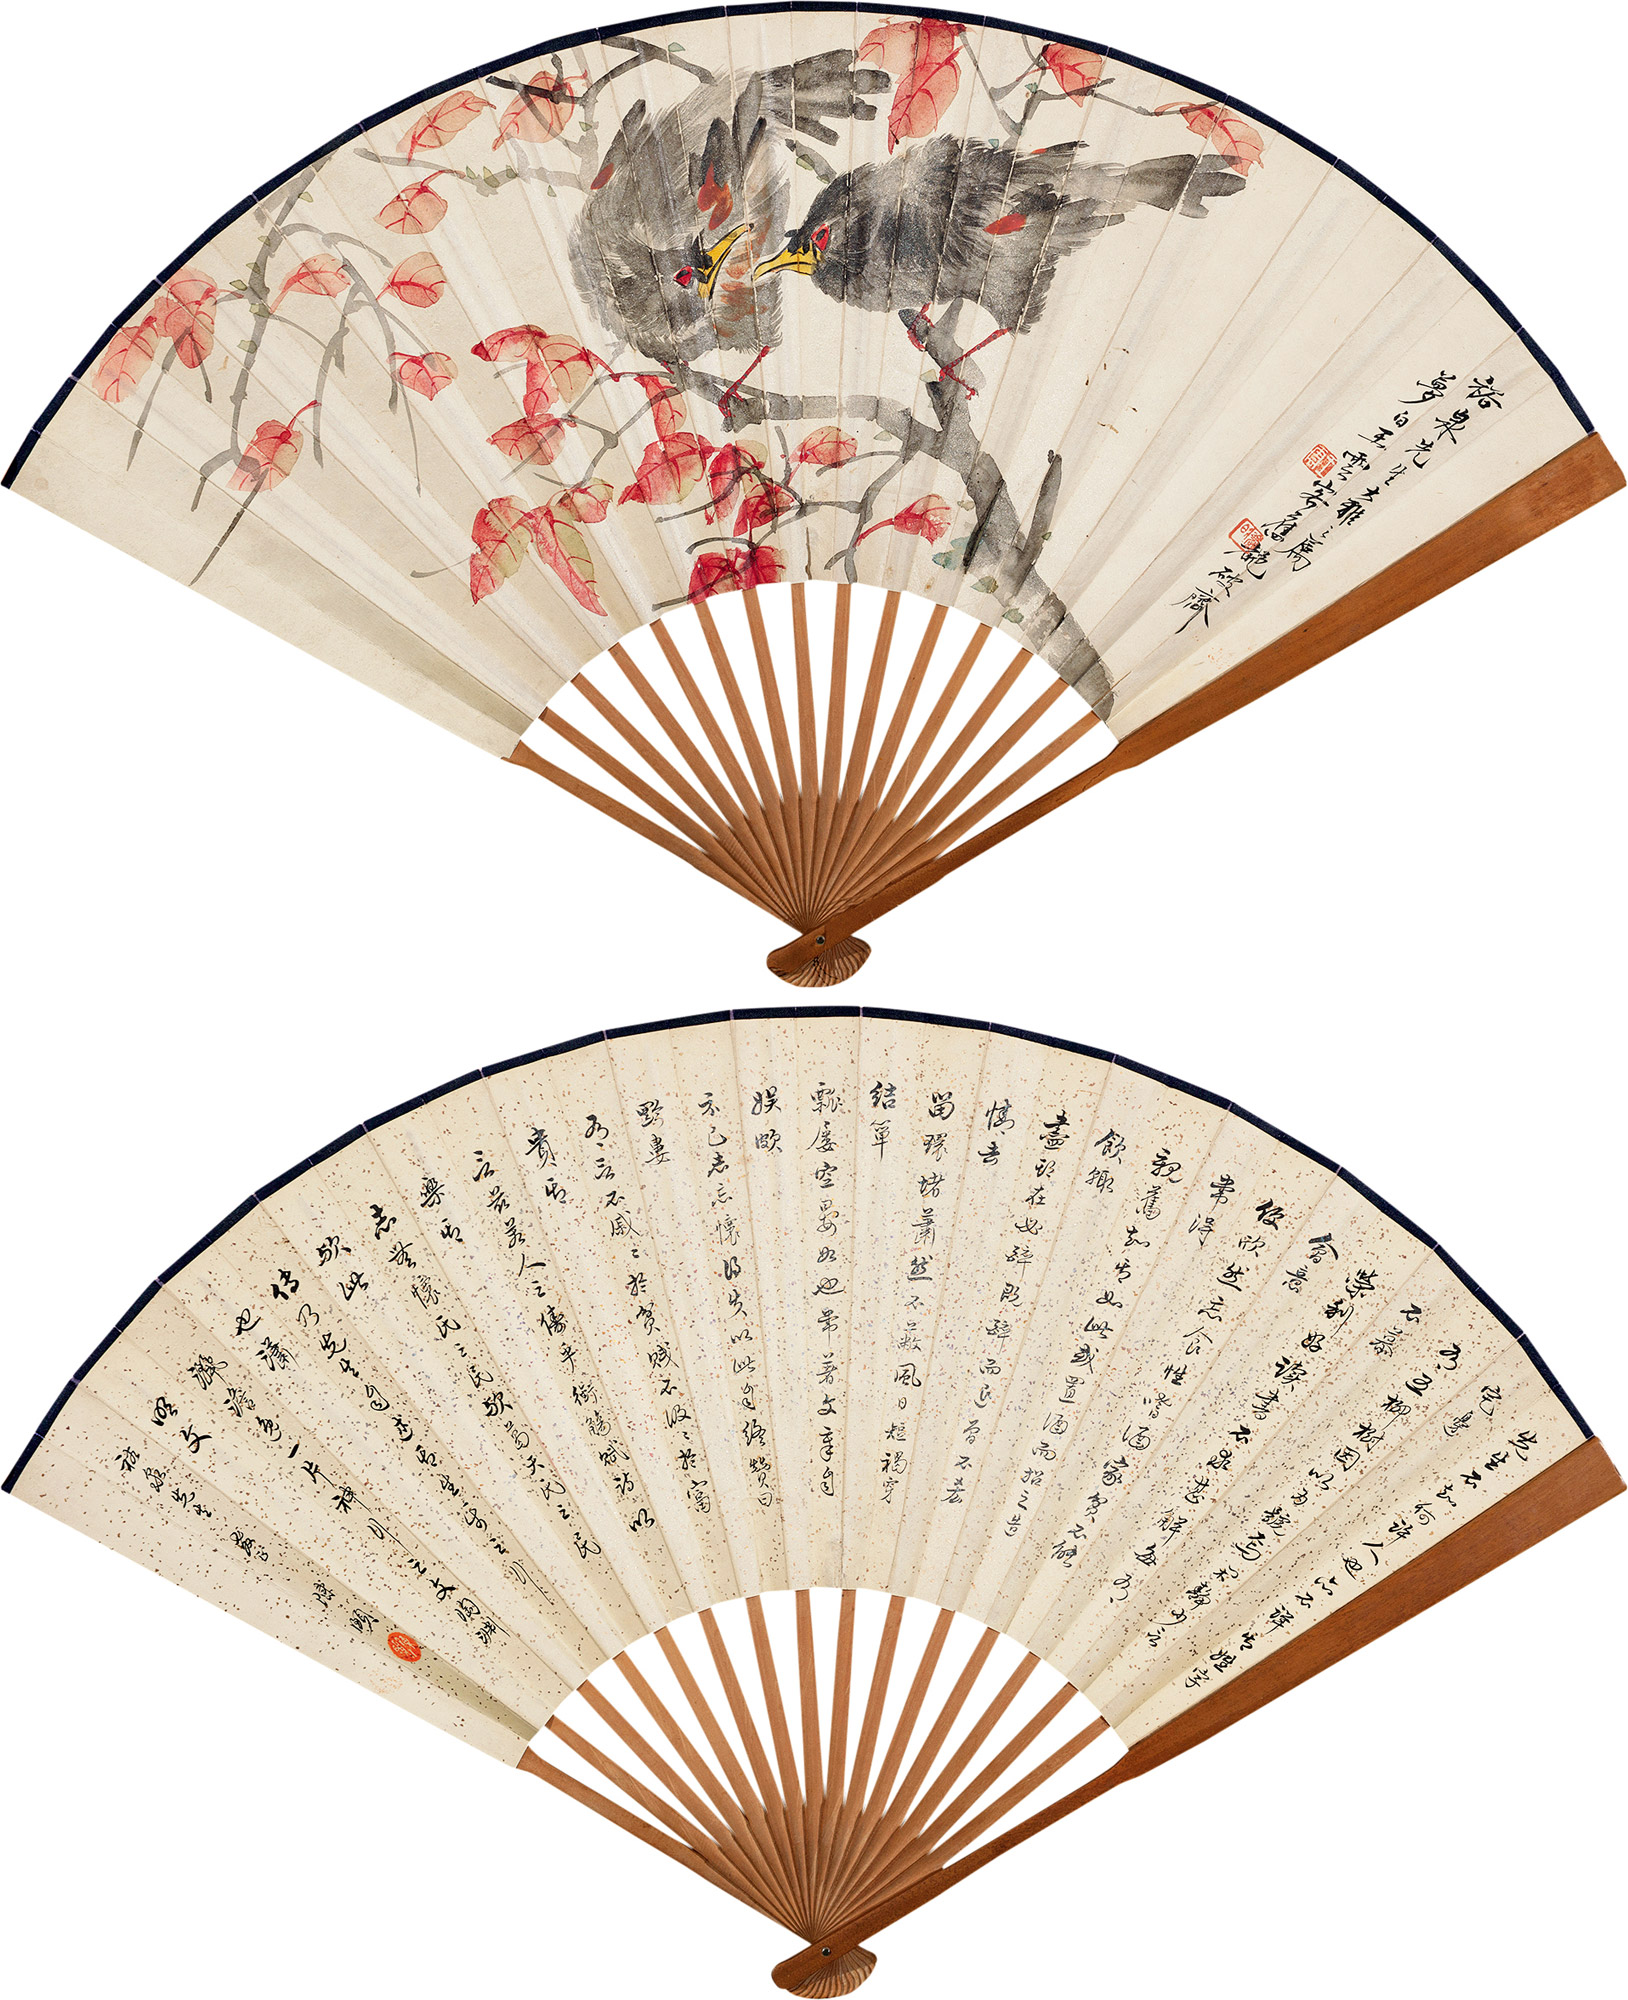 裕泉先生大雅之屬
夢白王雲客舊
破齋
先生不知何許人也亦不詳其姓字
宅邊
有五柳樹因以為號焉閑靜少言
不慕
榮利好讀書不求甚解每有
會意
便欣然忘食性嗜酒家貧不能
常得
親舊知其如此或置酒而招之造
飲輒
盡期在必醉既醉而退曾不吝
情去
留環堵蕭然不蔽風日短褐穿
結簞
瓢屢空晏如也常著文章自
娛頗
示己志忘懷得失以此自終贊曰
黔婁
有言不戚戚於貧賤不汲汲於富
貴其
言茲若人之儔乎銜觴賦詩以
樂其
志無懷氏之民歟葛天氏之民
歟此
傳乃先生自述其生平之行
也瀟
灑澹逸一片神行之文陶淵
明文
裕泉先生